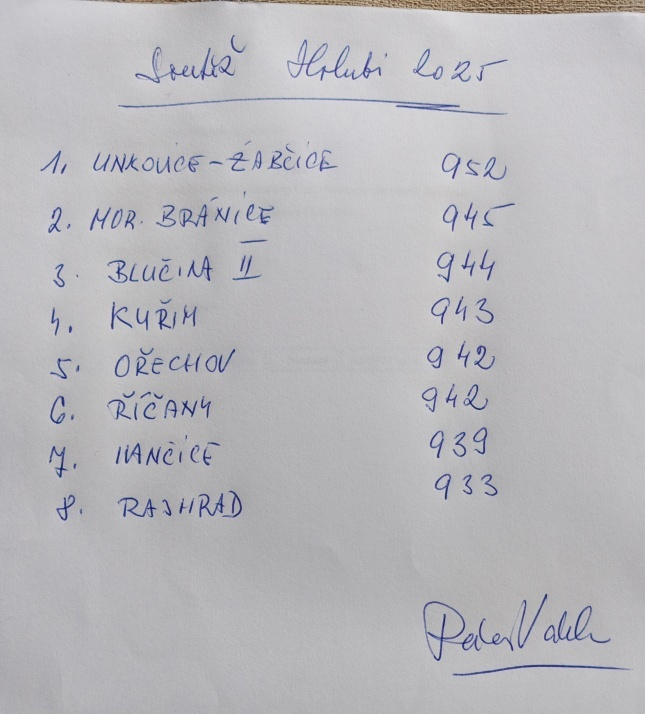 Soutěž Holubi 2025
1. UNKOVICE-ŽABČICE 952
2. MOR. BRÁNICE 945
3. BLUČINA II 944
4. KUŘIM 943
5. OŘECHOV 942
6. ŘÍČANY 942
7. IVANČICE 939
8. RAJHRAD 933